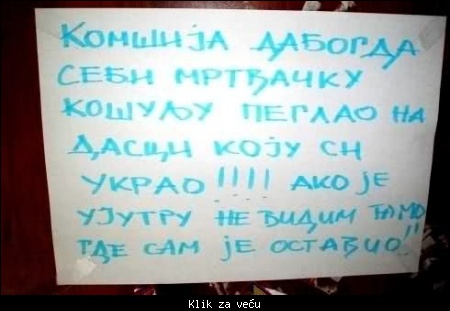 Комшија дабогда
себи мртвачку
кошуљу пеглао на
дасци коју си
украо!!!! Ако је
ујутру не видим тамо
где сам је оставио!!
Klik za veću